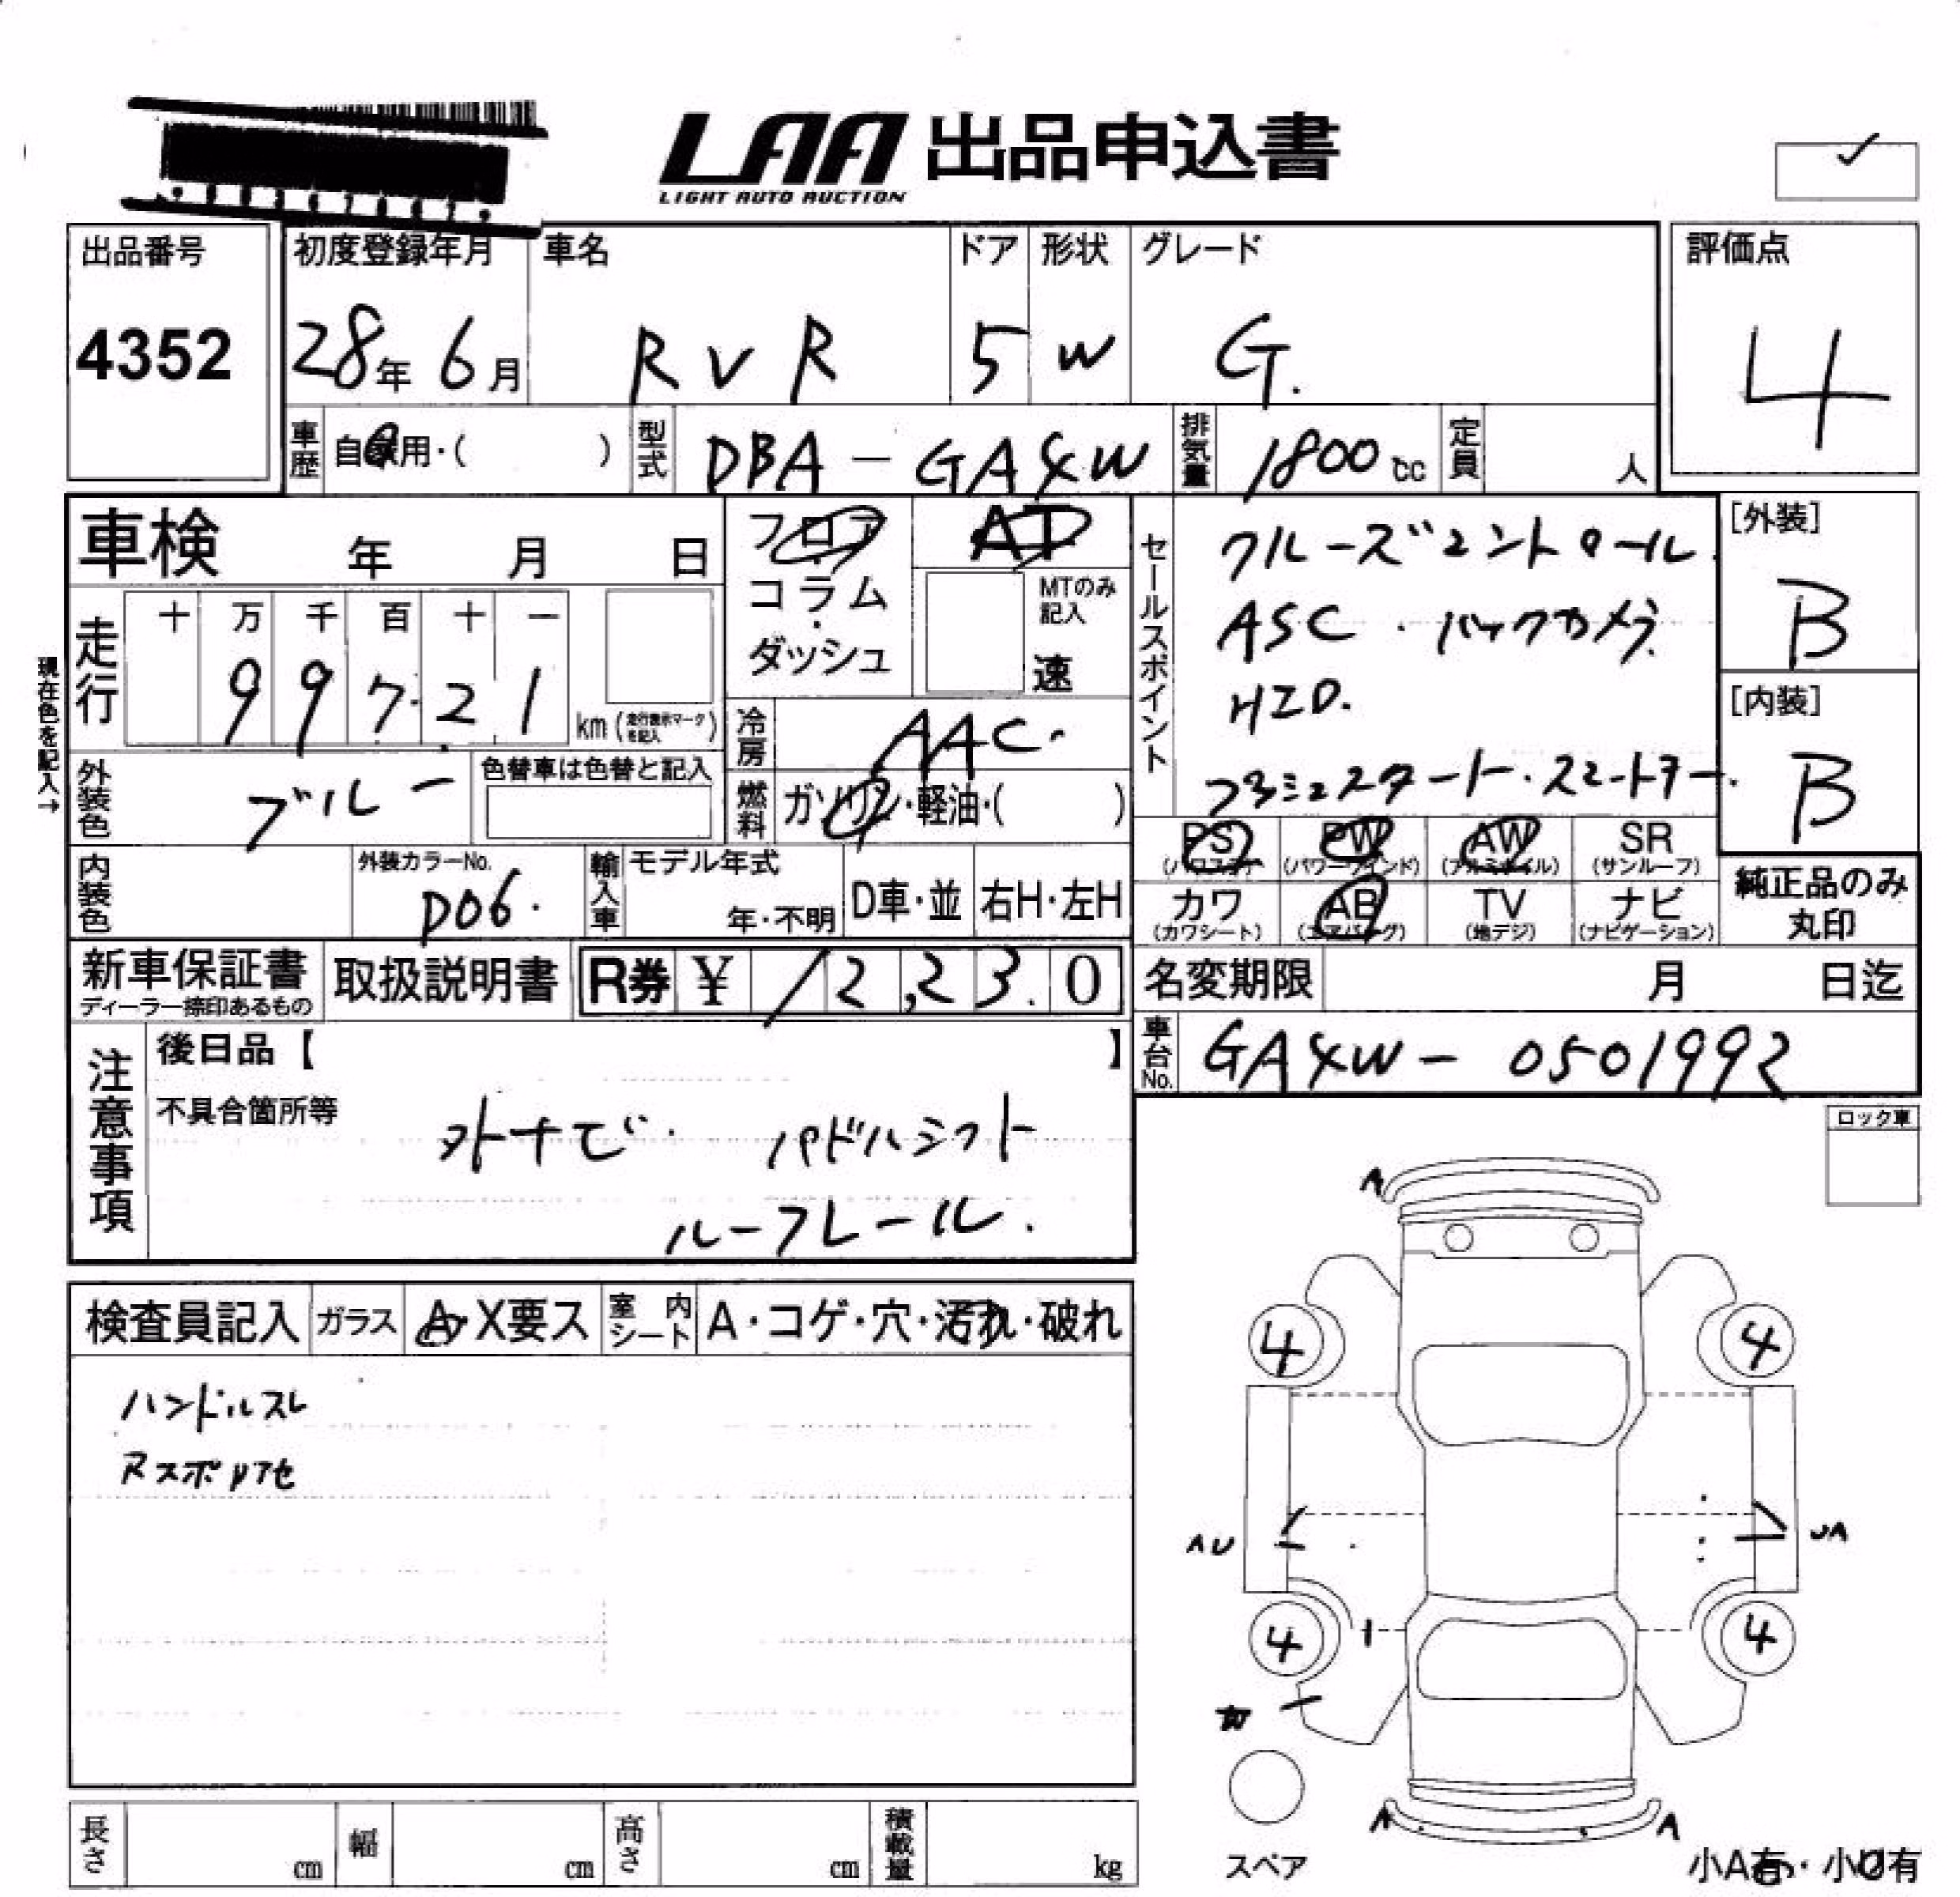 LAA 出品申込書
LIGHT AUTO AUCTION
出品番号
4352
初度登録年月
28年 6月
車名
RVR
ドア
5
形状
W
グレード
G.
評価点
4
車歴 自家用・( )
型式 DBA-GA4W
排気量 1800cc
定員 人
車検 年 月 日
フロア
コラム
・
ダッシュ
AT
MTのみ記入
速
セールスポイント
クルーズコントロール.
ASC・バックカメラ.
HID.
プッシュスタート・スマートキー.
[外装]
B
[内装]
B
現在色を記入→
走行
十 万 千 百 十 一
9 9 7 2 1
km (走行表示マークを記入)
冷房 AAC.
外装色 ブルー
色替車は色替と記入
燃料 ガソリン・軽油・( )
PS (パワステ)
PW (パワーウインド)
AW (アルミホイル)
SR (サンルーフ)
カワ (カワシート)
AB (エアバッグ)
TV (地デジ)
ナビ (ナビゲーション)
純正品のみ
丸印
内装色
外装カラーNo.
D06.
輸入車
モデル年式
年・不明
D車・並
右H・左H
新車保証書
ディーラー捺印あるもの
取扱説明書
R券 ¥ 12,23.0
名変期限 月 日迄
車台No. GA4W-0501992
注意事項
後日品【 】
不具合箇所等
外ナビ. パドルシフト
ルーフレール.
ロック車
検査員記入
ガラス A・X要ス
室内シート A・コゲ・穴・汚れ・破れ
ハンドルスレ
A
4 4
AU UA
4 4
スペア
A A
小A有・小U有
長さ cm
幅 cm
高さ cm
積載量 kg